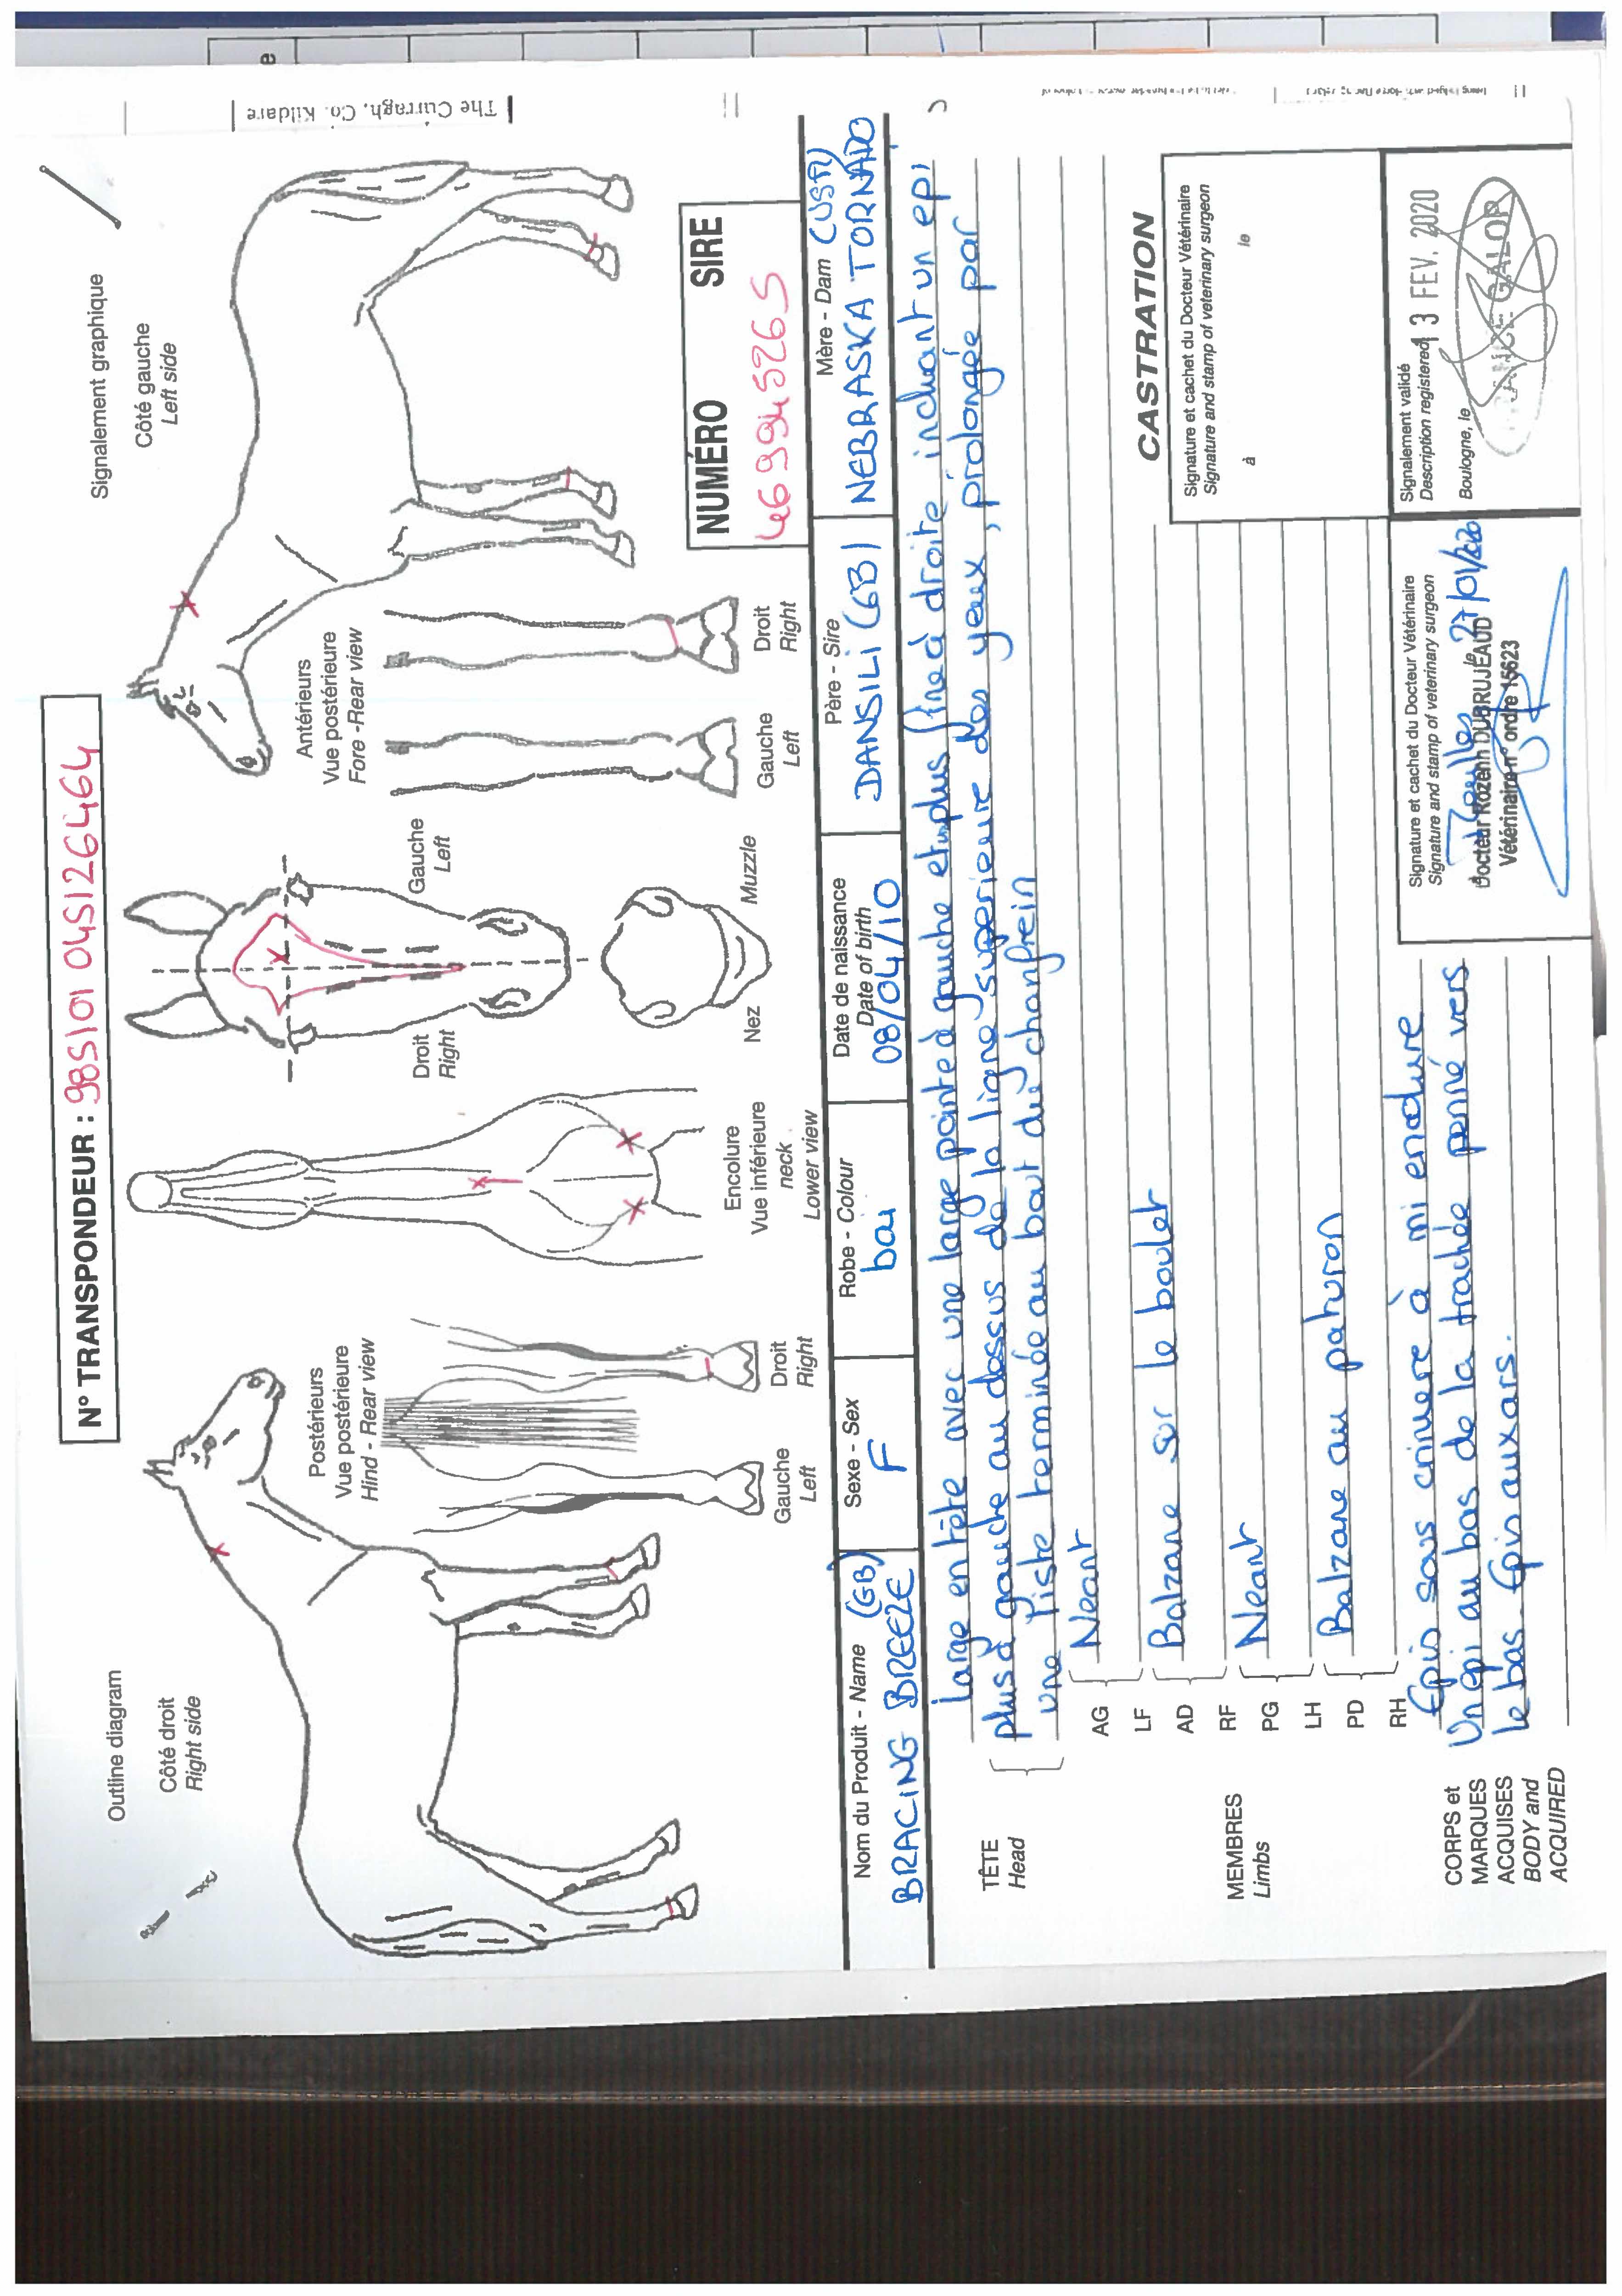 The Curragh, Co. Kildare
N° TRANSPONDEUR : 985101 045126464
Outline diagram
Côté droit
Right side
Signalement graphique
Côté gauche
Left side
Postérieurs
Vue postérieure
Hind - Rear view
Gauche
Left
Droit
Right
Encolure
Vue inférieure
neck
Lower view
Droit
Right
Gauche
Left
Nez
Muzzle
Antérieurs
Vue postérieure
Fore - Rear view
Gauche
Left
Droit
Right
NUMÉRO SIRE
46994526S
Nom du Produit - Name (GB)
BRACING BREEZE
Sexe - Sex
F
Robe - Colour
bai
Date de naissance
Date of birth
08/04/10
Père - Sire
DANSILI (GB)
Mère - Dam (USA)
NEBRASKA TORNADO
TÊTE
Head
Large en tête avec une large pointe à gauche et plus fine à droite incluant un epi
plus à gauche au dessus de la ligne supérieure des yeux, prolongée par
une liste terminée au bout du chanfrein
MEMBRES
Limbs
AG
LF
Neant
AD
RF
Balzane sur le boulet
PG
LH
Neant
PD
RH
Balzane au paturon
CORPS et
MARQUES
ACQUISES
BODY and
ACQUIRED
Epis sous criniere à mi encolure
Un épi au bas de la trachée penné vers
le bas. Epis aux ars.
CASTRATION
Signature et cachet du Docteur Vétérinaire
Signature and stamp of veterinary surgeon
à le
Signature et cachet du Docteur Vétérinaire
Signature and stamp of veterinary surgeon
le 27/01/2020
Docteur Rozenn DUBRUJEAUD
Vétérinaire n° ordre 15623
Signalement validé
Description registered
Boulogne, le
13 FEV. 2020
FRANCE GALOP